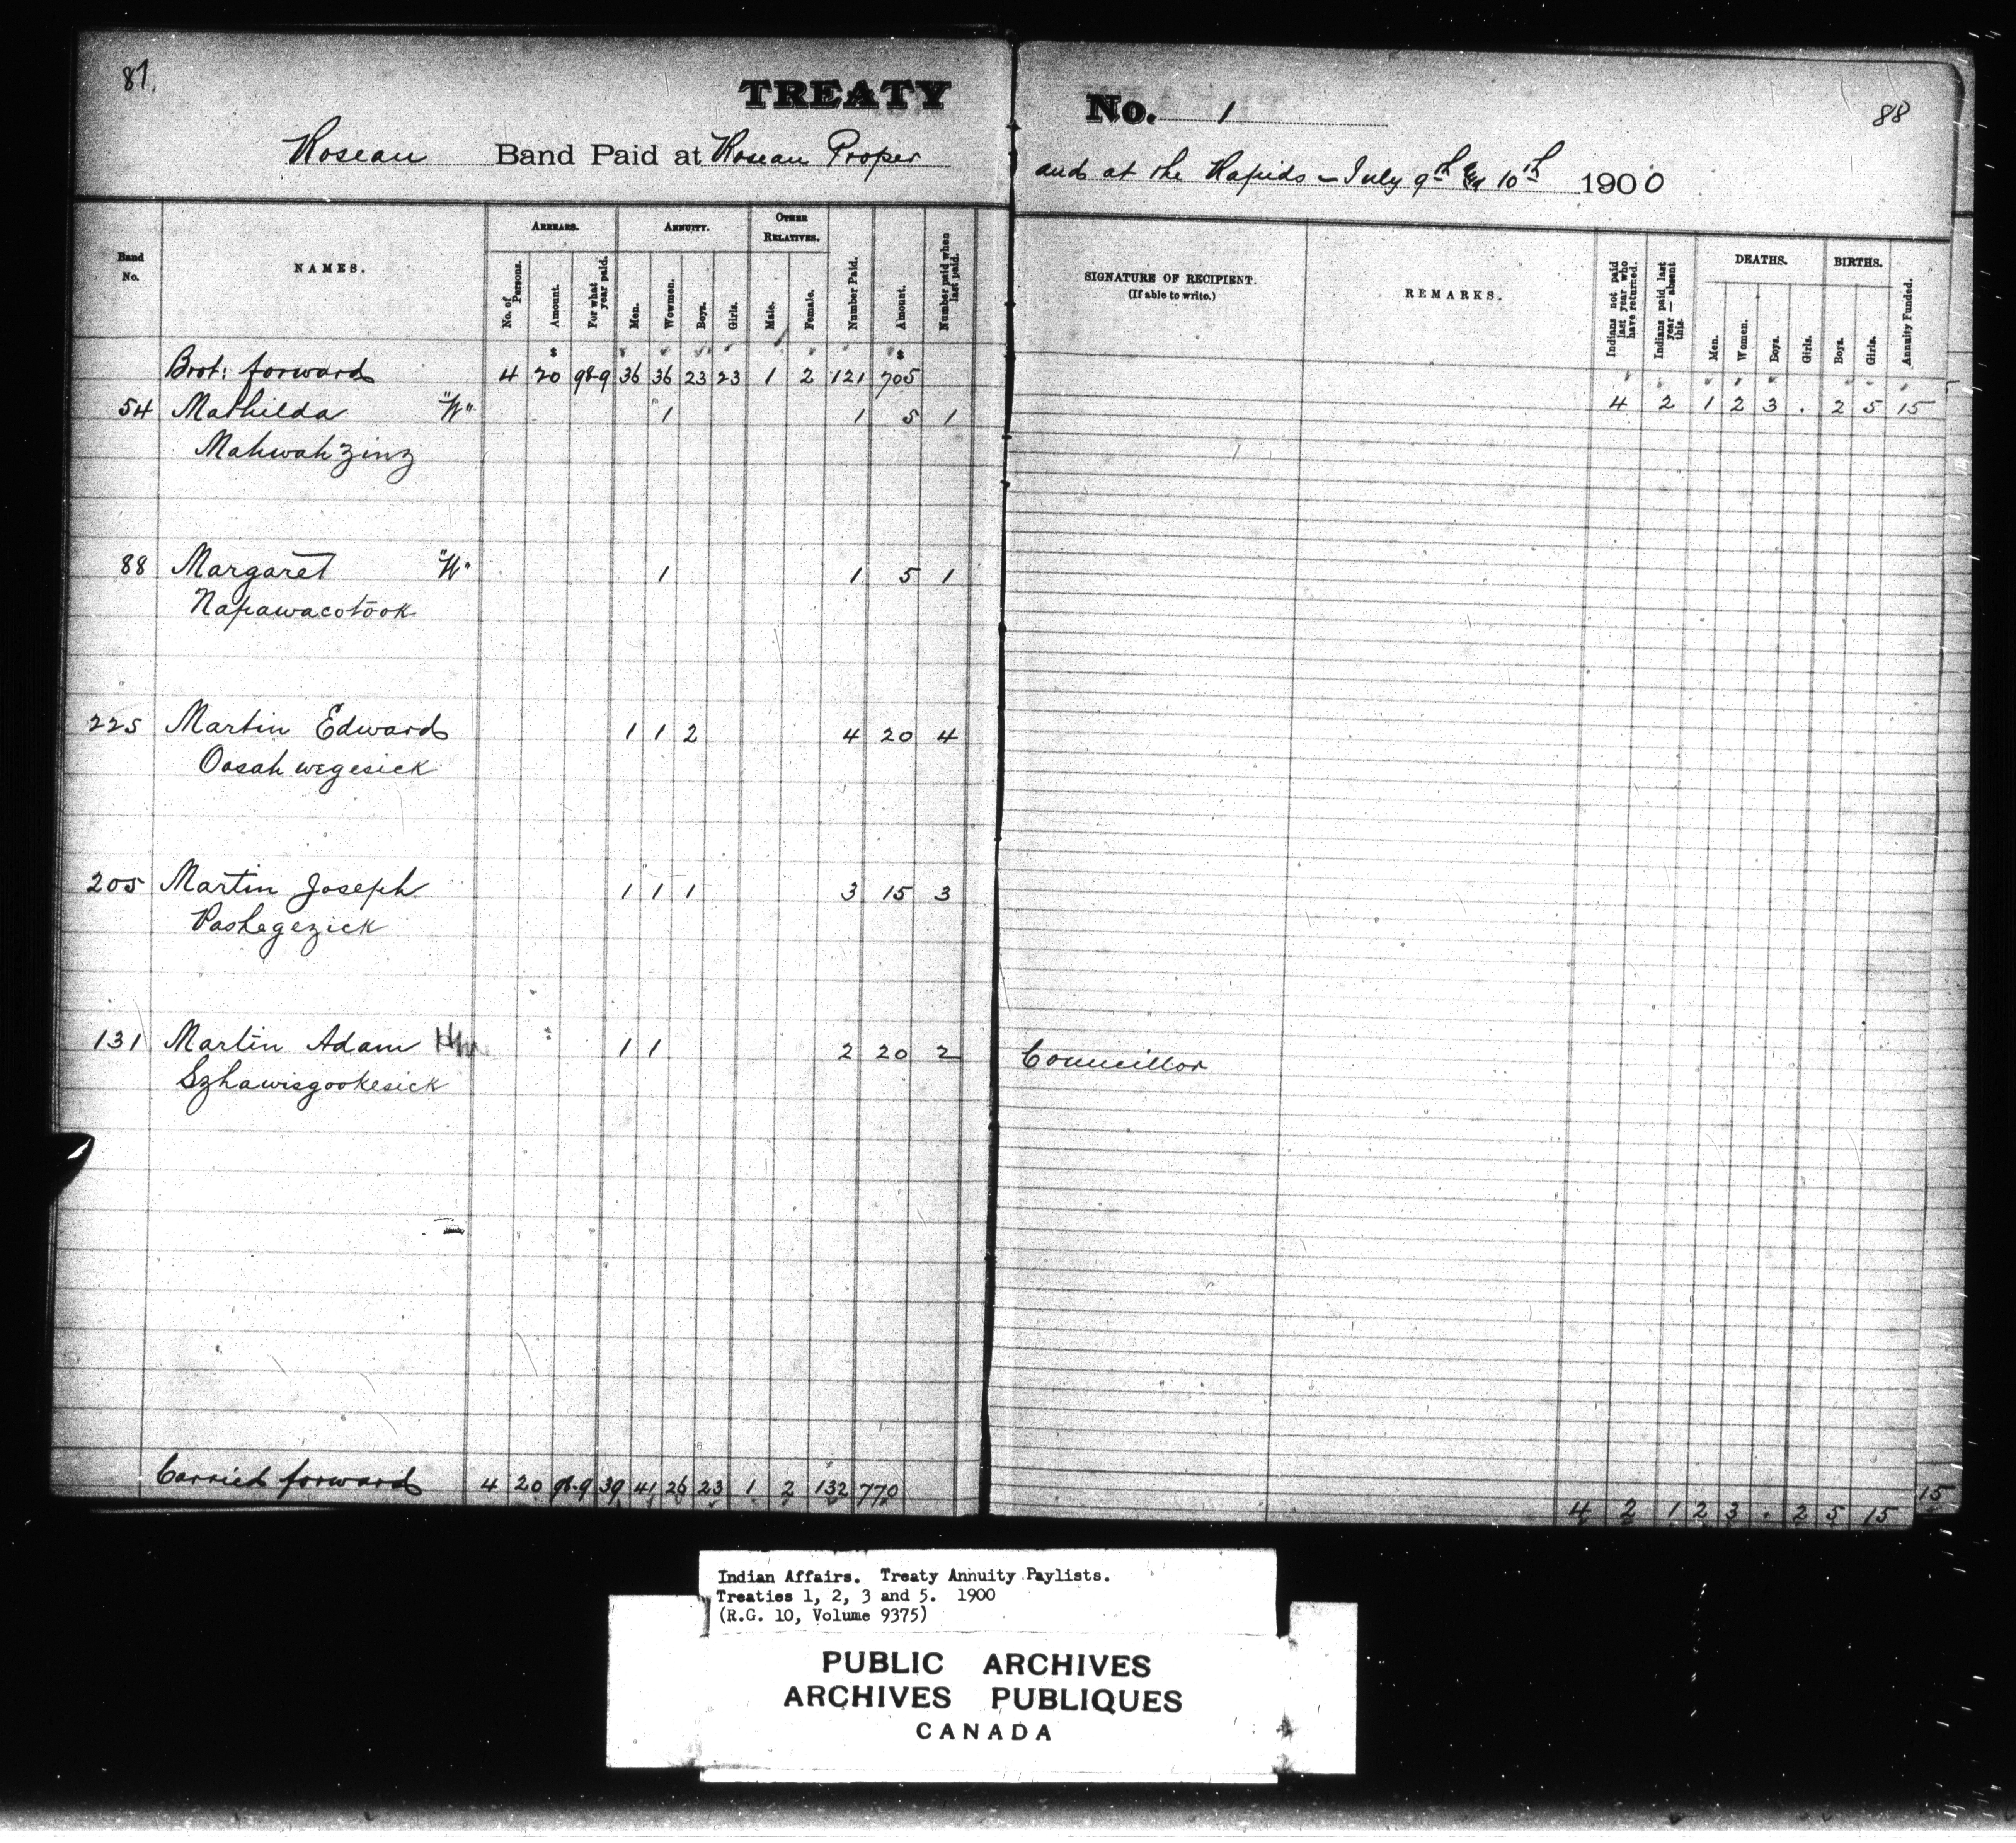 87.
TREATY
Roseau Band Paid at Roseau Proper
Band No.
NAMES.
ARREARS.
ANNUITY.
OTHER RELATIVES.
No. of Persons.
Amount.
For what year paid.
Men.
Women.
Boys.
Girls.
Male.
Female.
Number Paid.
Amount.
Number paid when last paid.
$ $
Brot: forward 4 20 98-9 36 36 23 23 1 2 121 705
54 Mathilda "W" 1 1 5 1
Mahwahzinz
88 Margaret "W" 1 1 5 1
Napawacotook
225 Martin Edward 1 1 2 4 20 4
Oasahwegesick
205 Martin Joseph 1 1 1 3 15 3
Pashegezick
131 Martin Adam 1 1 2 20 2
Szhawisgookesick
Carried forward 4 20 98-9 39 41 26 23 1 2 132 770
No. 1
88
and at the Rapids - July 9th & 10th 1900
SIGNATURE OF RECIPIENT.
(If able to write.)
REMARKS.
Indians not paid last year who have returned.
Indians paid last year — absent this.
DEATHS.
BIRTHS.
Men.
Women.
Boys.
Girls.
Boys.
Girls.
Annuity Funded.
4 2 1 2 3 . 2 5 15
Councillor
15
4 2 1 2 3 . 2 5 15
Indian Affairs. Treaty Annuity Paylists.
Treaties 1, 2, 3 and 5. 1900
(R.G. 10, Volume 9375)
PUBLIC ARCHIVES
ARCHIVES PUBLIQUES
CANADA